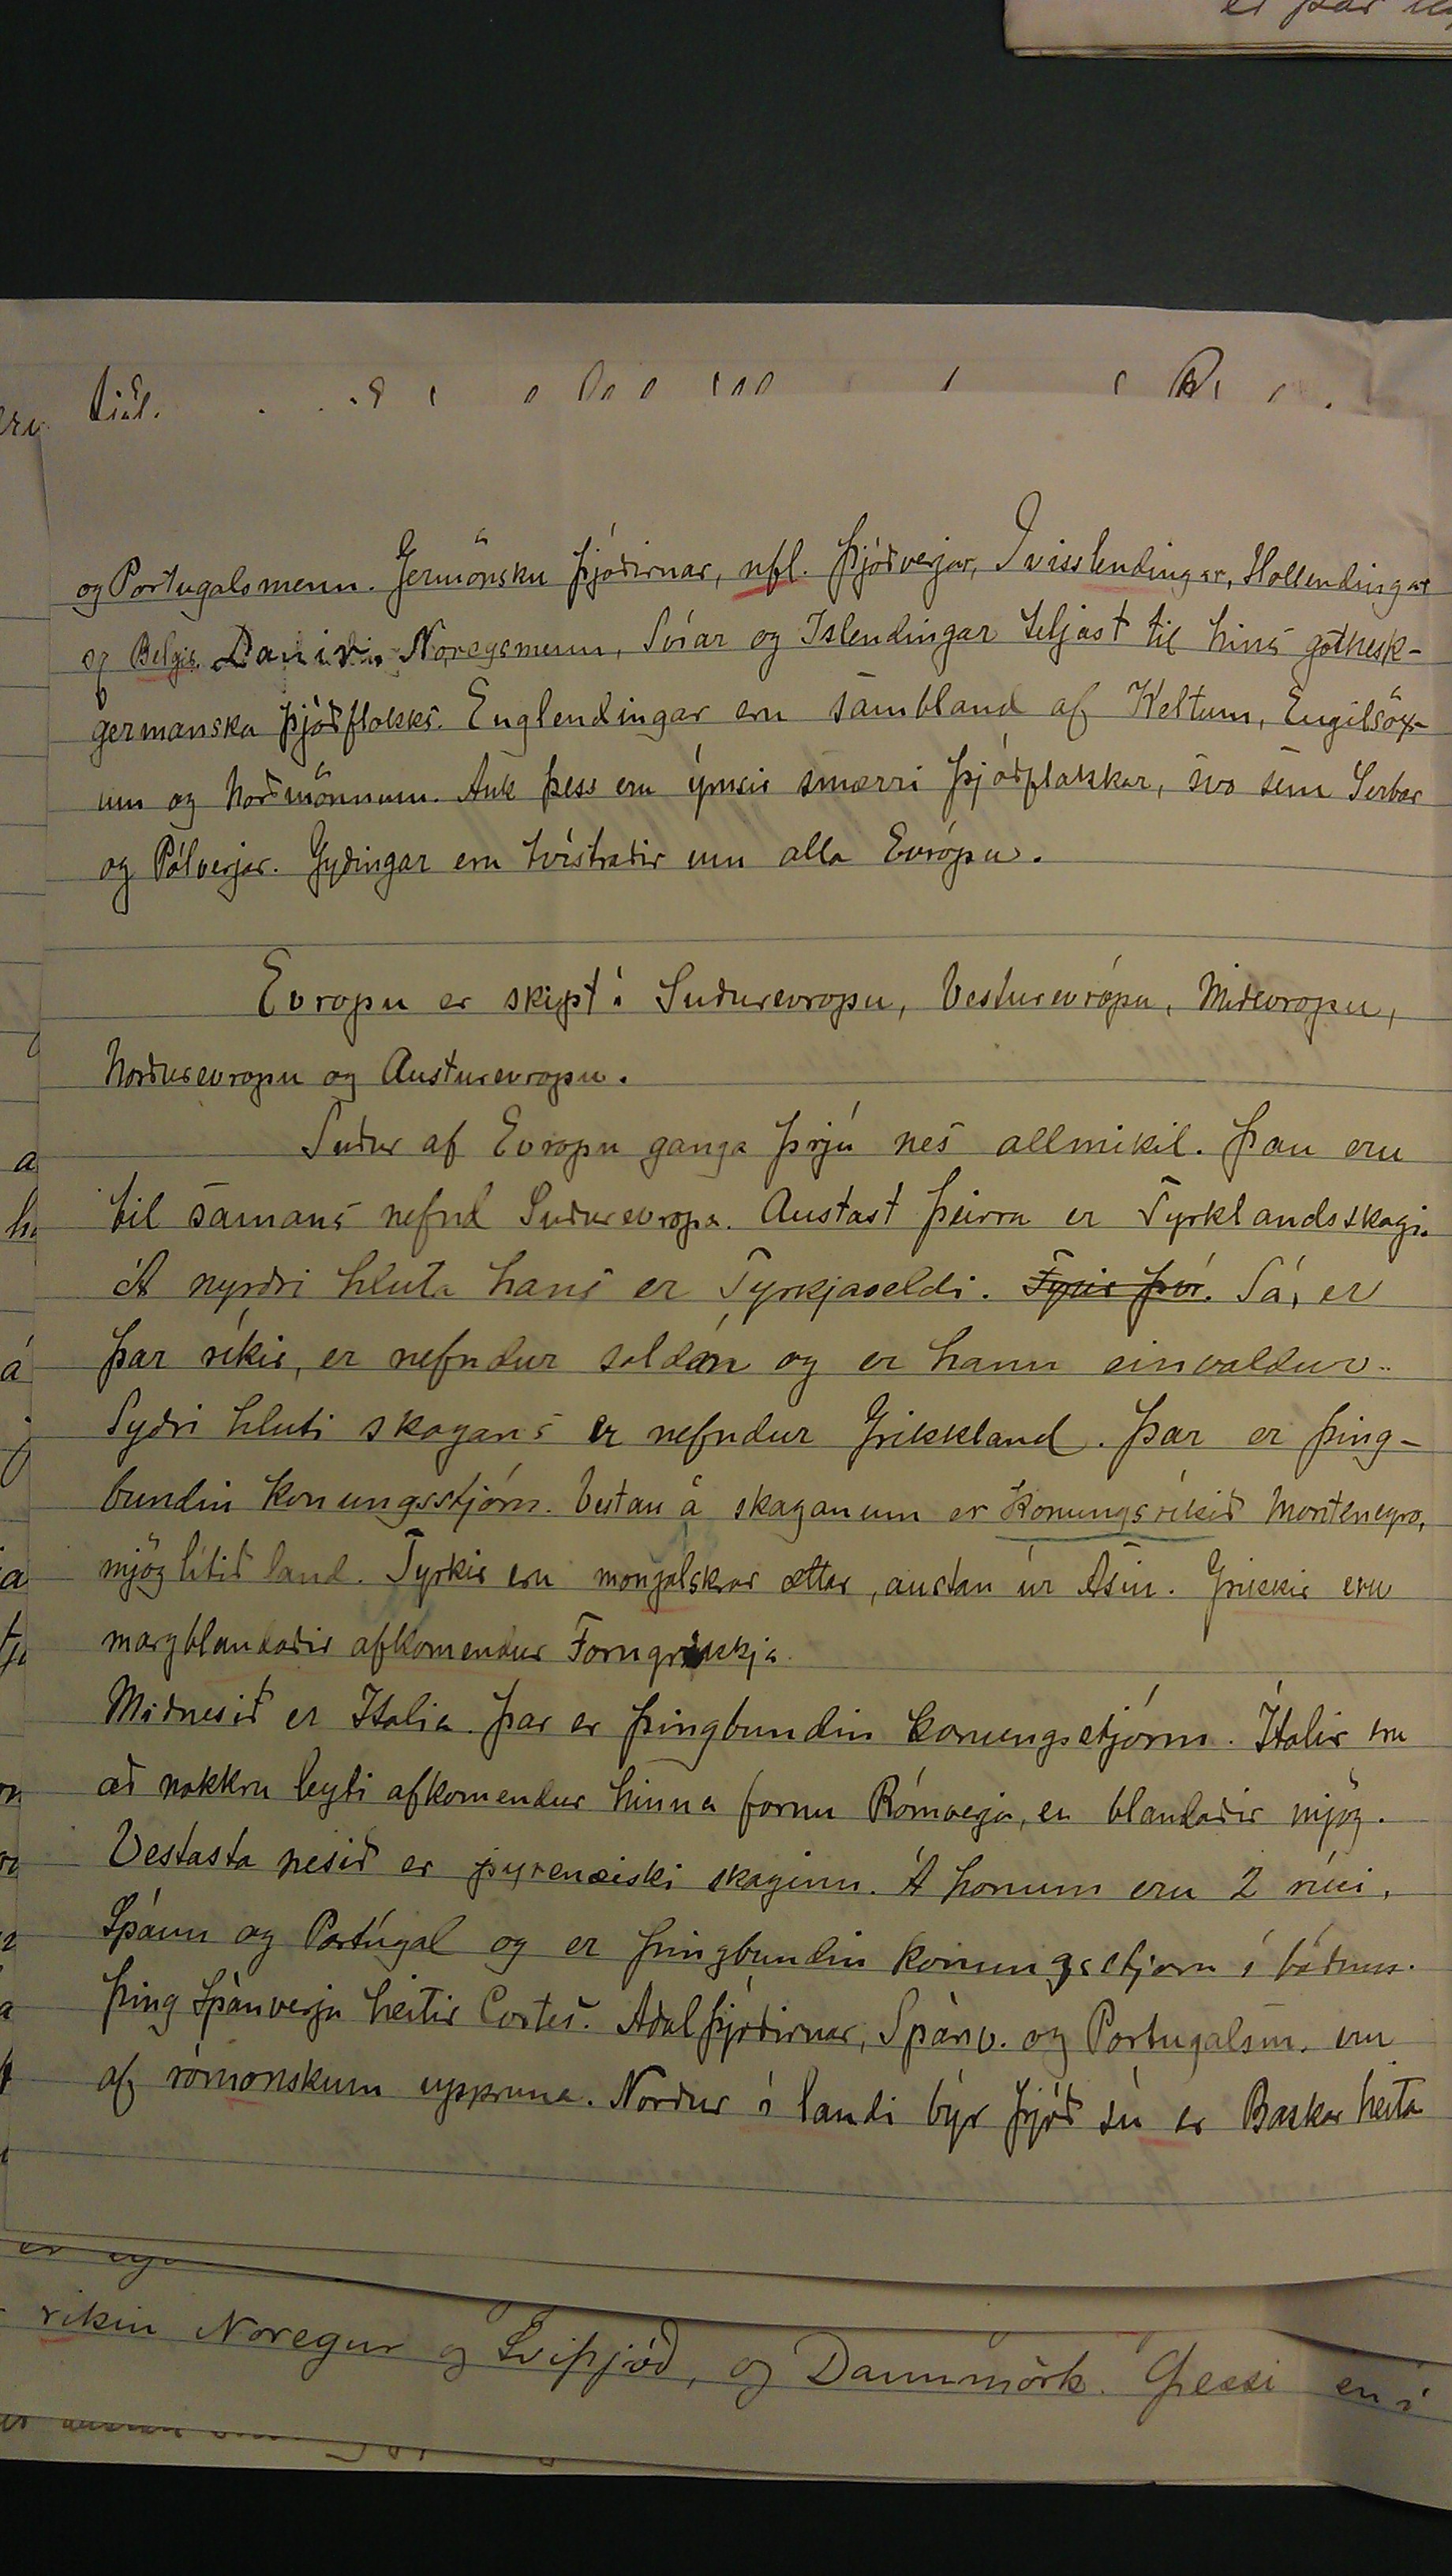 er þar
tial.
og Portugalsmenn. Germönsku þjóðirnar, nfl. Þjóðverjar, Svisslendingar, Hollendingar
og Belgir. Danir, Noregsmenn, Svíar og Islendingar teljast til hins gothesk-
germanska þjóðflokks. Englendingar eru sambland af Keltum, Engilsöx-
um og Norðmönnum. Auk þess eru ýmsir smærri þjóðflokkar, svo sem Serbar
og Pólverjar. Gyðingar eru tvístraðir um alla Evrópu.
Evropu er skipt í Suðurevropu, Vesturevrópu, Miðevropu,
Norðurevropu og Austurevropu.
Suður af Evropu ganga þrjú nes allmikil. Þau eru
til samans nefnd Suðurevropa. Austast þeirra er Tyrklandsskagi.
Á nyrðri hluta hans er Tyrkjaveldi. Fyrir því. Sá, er
þar ríkir, er nefndur soldán og er hann einvaldur.
Syðri hluti skagans er nefndur Grikkland. Þar er þing-
bundin konungsstjórn. Vestan á skaganum er konungsríkið Montenegro,
mjög lítið land. Tyrkir eru mongolskrar ættar, austan úr Asíu. Grikkir eru
margblandaðir afkomendur Forngrikkja.
Miðnesið er Italia. Þar er þingbundin konungsstjórn. Ítalir eru
að nokkru leyti afkomendur hinna fornu Rómverja, en blandaðir mjög.
Vestasta nesið er pyreneiski skaginn. Á honum eru 2 ríki,
Spánn og Portúgal og er þingbundin konungsstjorn í báðum.
Þing Spánverja heitir Cortes. Aðalþjóðirnar, Spánv. og Portugalsm. eru
af rómonskum uppruna. Norður í landi býr þjóð sú er Baskar heita
rikin Noregur og Svíþjóð, og Danmmörk. Þessi